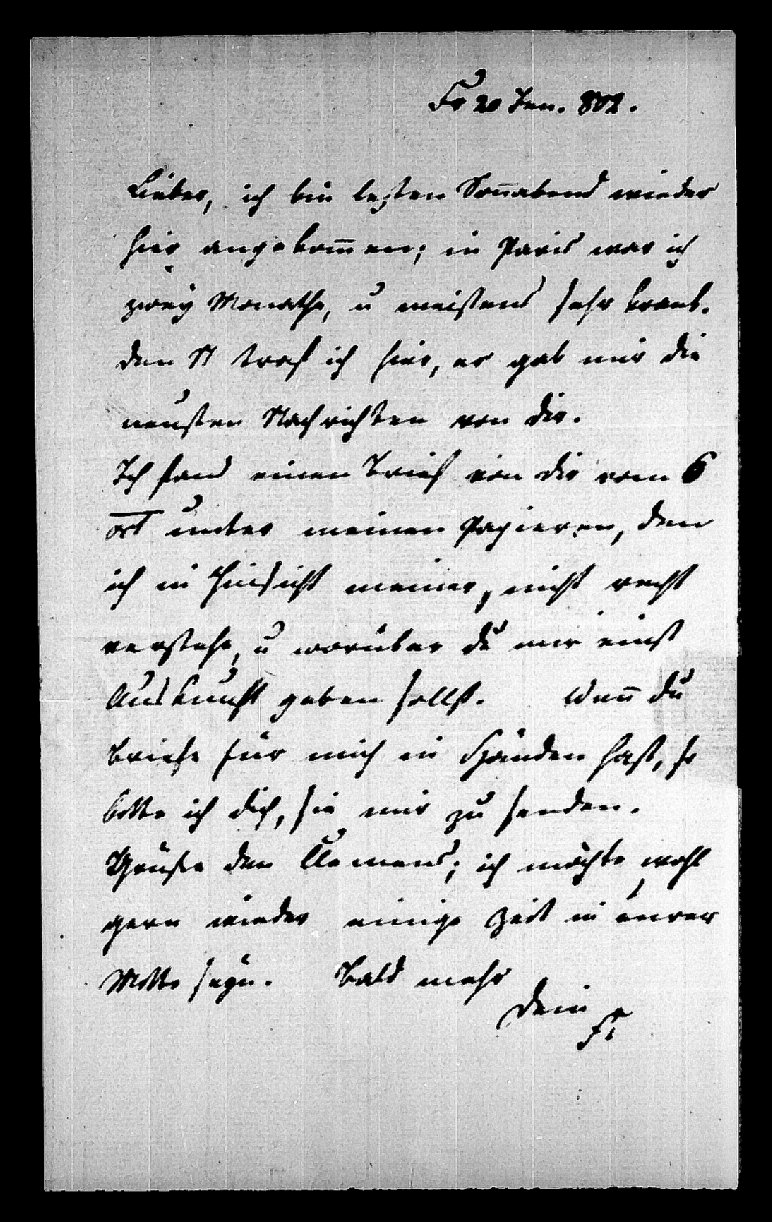 Fr 20 Jan. 802.
Lieber, ich bin lezten Sonnabend wieder
hier angekommen; in Paris war ich
zwey Monathe, u meistens sehr krank.
den N traf ich hier, er gab mir die
neusten Nachrichten von dir.
Ich fand einen Brief von dir vom 6
oct unter meinen Papieren, den
ich in Hinsicht meiner, nicht recht
verstehe, u worüber du mir einst
Auskunft geben sollst. Wenn du
briefe für mich in Händen hast, so
bitte ich dich, sie mir zu senden.
Grüße den Clemens; ich möchte wohl
gern wieder einige Zeit in eurer
Mitte seyn. Bald mehr
Dein
Fr